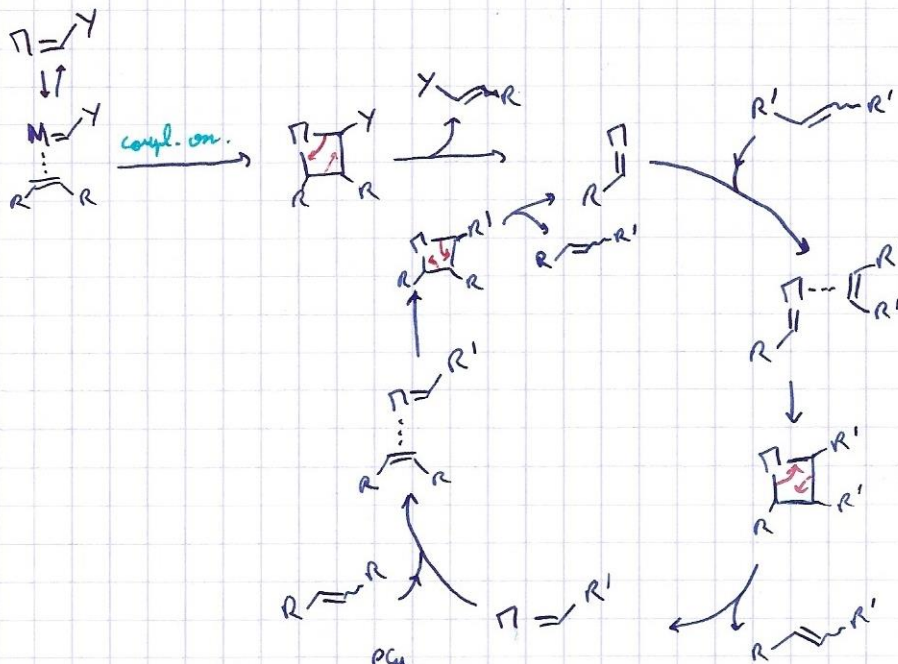 M = Y
M = Y
R R
coupl. ox.
M Y
R R
Y R
M
R
R' R'
M R'
R R
R R'
M R
R R'
M = R'
R R
M R'
R R'
R R
M = R'
R R'
PCy